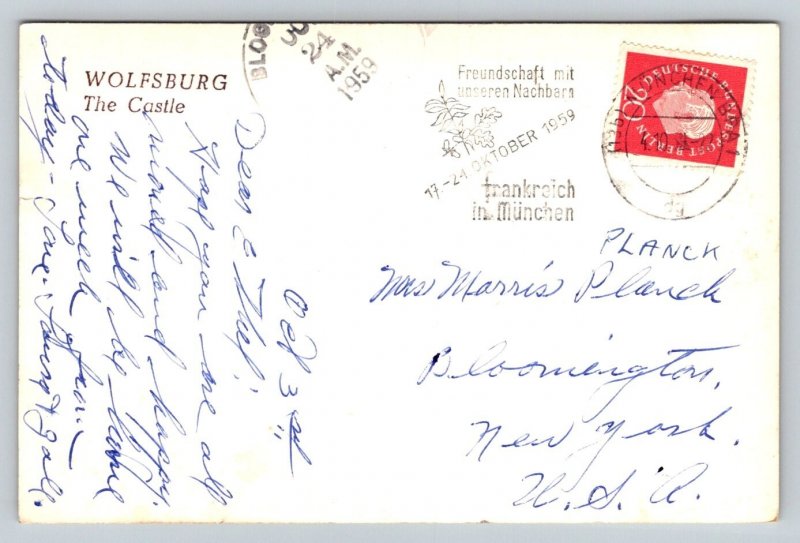 WOLFSBURG
The Castle
BLOO
24
A.M.
1959
Freundschaft mit
unseren Nachbarn
17.-21. OKTOBER 1959
Frankreich
in München
DEUTSCHE BUNDESPOST BERLIN
20
MÜNCHEN BPA 1
Oct 3rd
Dear
Hope you are all
and happy.
We will be home
one week from
today - Love
PLANCK
Mrs Morris Planck
Bloomington,
New York.
U. S. A.